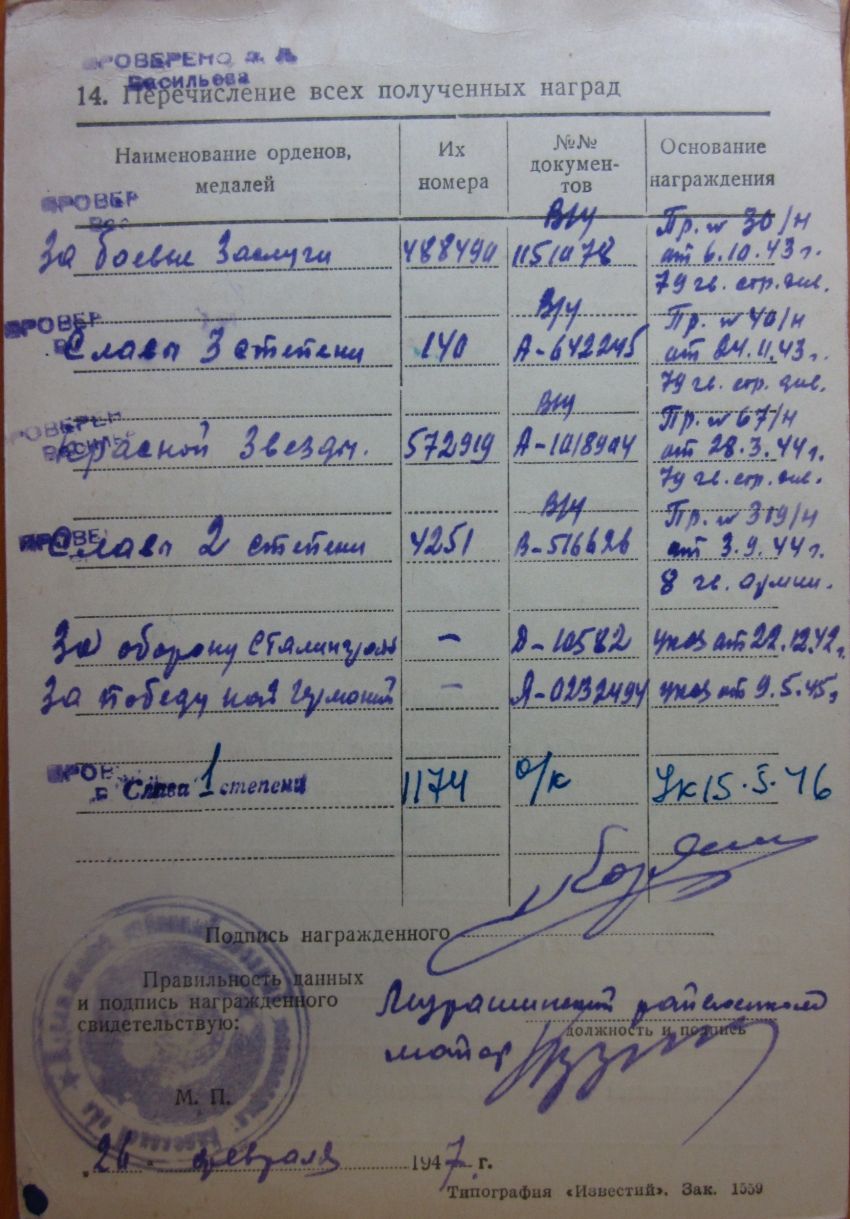 ПРОВЕРЕНО
Васильева
14. Перечисление всех полученных наград
Наименование орденов, медалей
Их номера
№№ документов
Основание награждения
ПРОВЕР
За боевые Заслуги 488490 В/у 1151078 Пр. № 30/н
от 6.10.43 г.
79 гв. стр. див.
ПРОВЕР
Славы 3 степени 140 В/у А-642245 Пр. № 40/н
от 24.11.43 г.
79 гв. стр. див.
ПРОВЕРЕН
Василь
Красной Звезды. 572919 В/у А-1018904 Пр. № 67/н
от 28.3.44 г.
79 гв. стр. див.
Славы 2 степени 4251 В/у В-516626 Пр. № 319/н
от 3.9.44 г.
8 гв. армии.
За оборону Сталинграда — Д-10582 указ от 22.12.42 г.
За победу над Германией — Я-0232494 указ от 9.5.45 г.
Слава 1 степени 1174 о/к Ук 15.5.46
Подпись награжденного
Правильность данных
и подпись награжденного
свидетельствую:
райвоенком
должность и подпись
майор
М. П.
„26" февраля 1947 г.
Типография «Известий». Зак. 1559